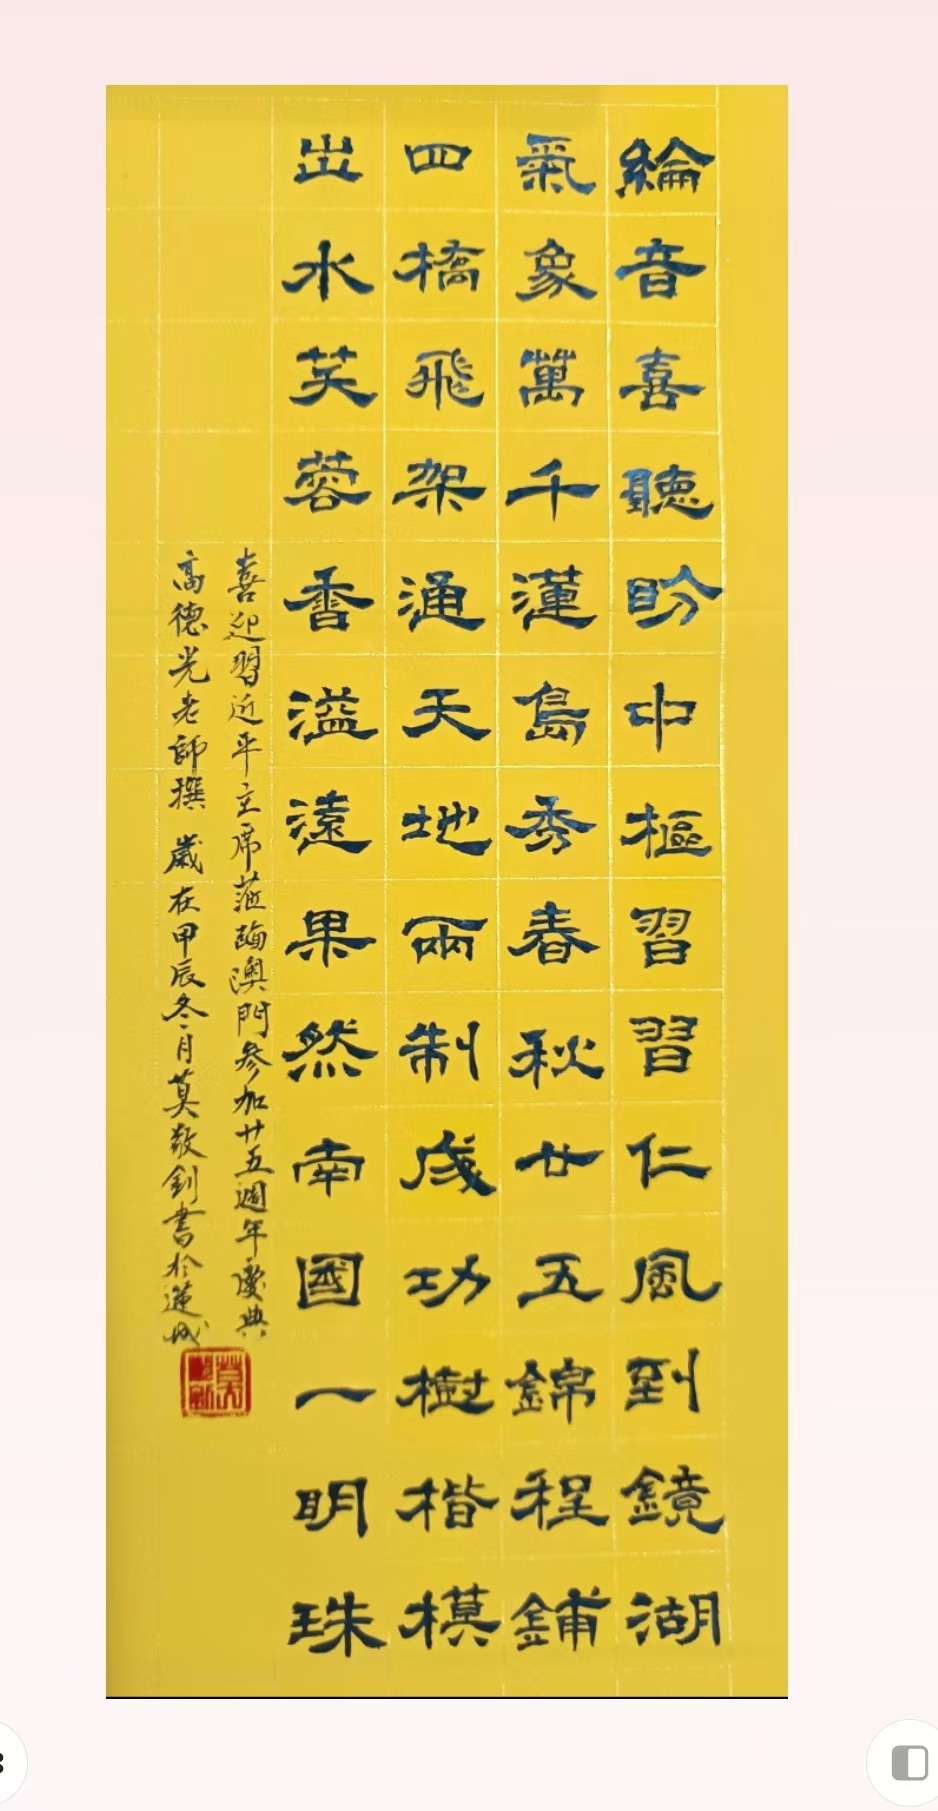 綸音喜聽盼中樞習習仁風到鏡湖
氣象萬千蓮島秀春秋廿五錦程鋪
四橋飛架通天地兩制成功樹楷模
出水芙蓉香溢遠果然南國一明珠
喜迎習近平主席蒞臨澳門参加廿五週年慶典
高德光老師撰 歲在甲辰冬月莫敬釗書於蓮城